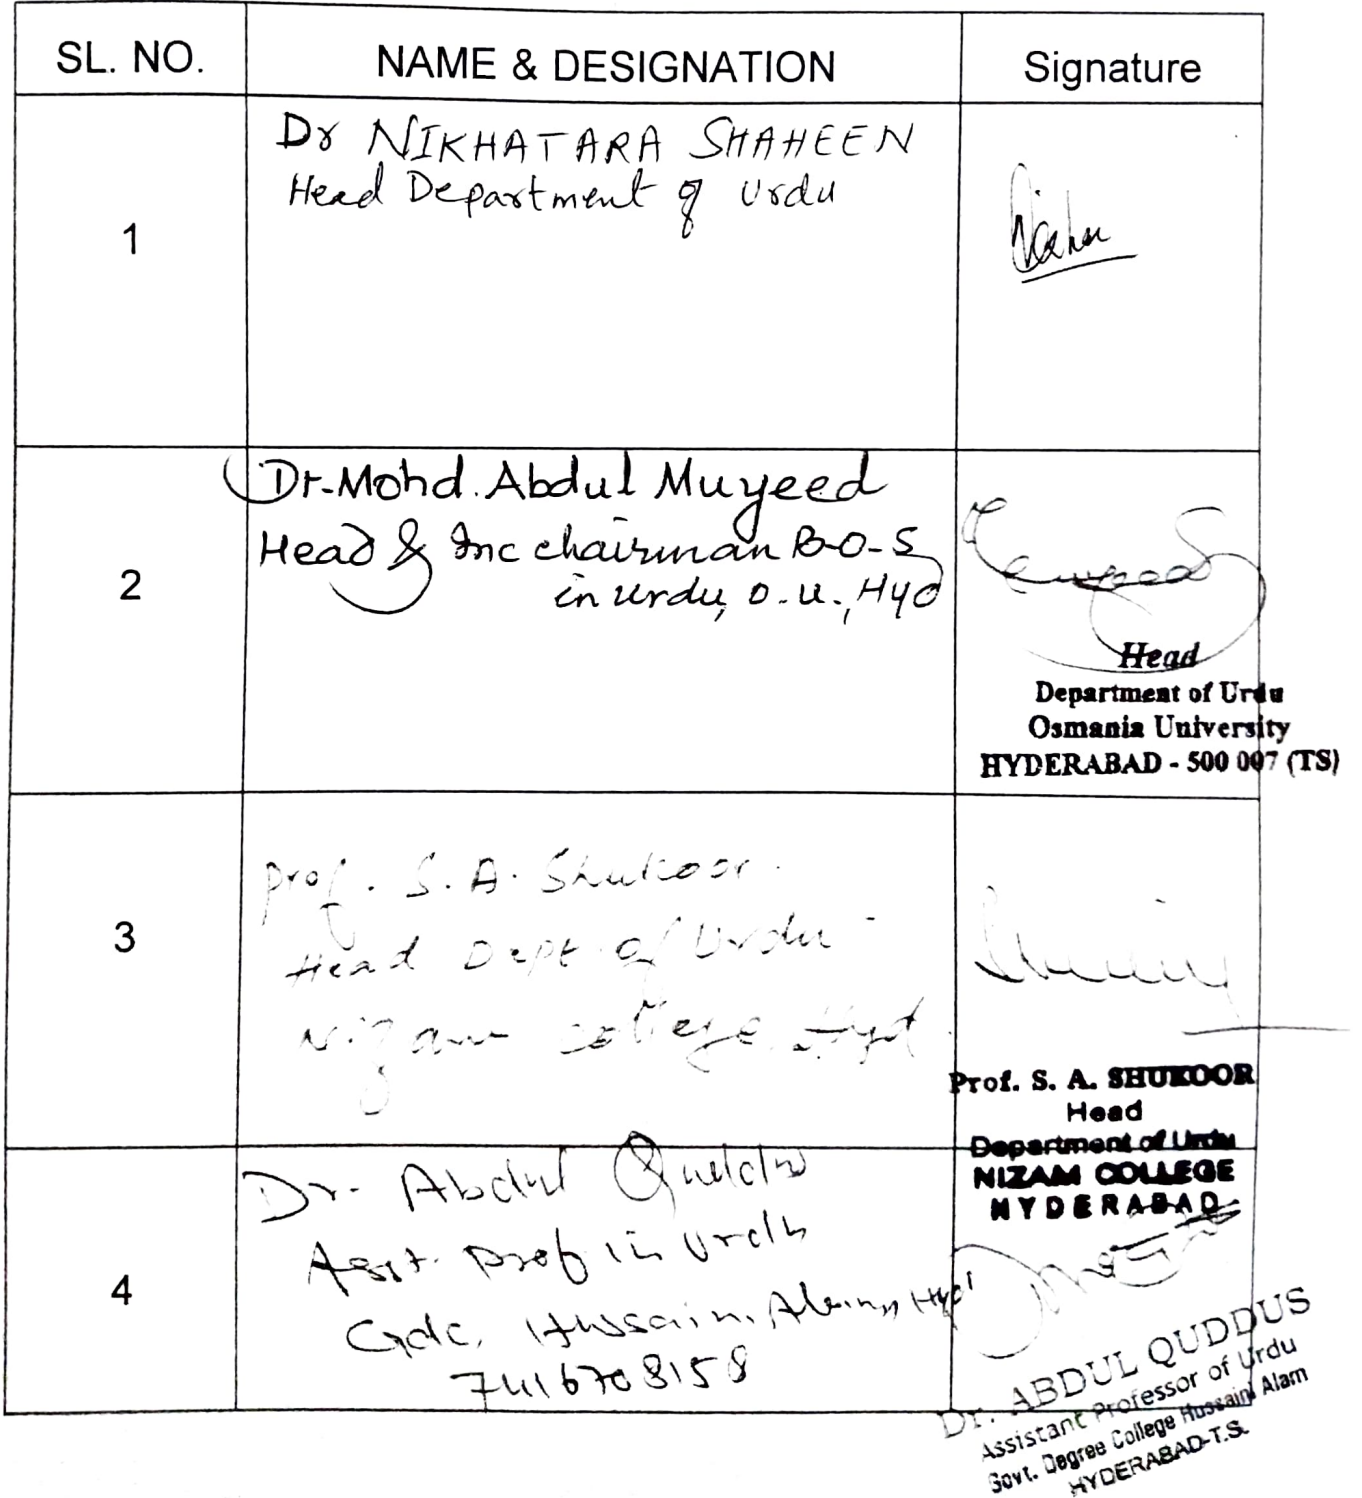 SL. NO. NAME & DESIGNATION Signature
1
Dr NIKHATARA SHAHEEN
Head Department of Urdu
2
Dr. Mohd. Abdul Muyeed
Head & Inc chairman B-O-S
in urdu, O.U., Hyd
Head
Department of Urdu
Osmania University
HYDERABAD - 500 007 (TS)
3
Prof. S. A. Shukoor.
Head Dept. of Urdu
Nizam college, Hyd.
Prof. S. A. SHUKOOR
Head
Department of Urdu
NIZAM COLLEGE
HYDERABAD
4
Dr. Abdul Quddus
Asst. Prof in Urdu
Gdc, Hussaini Alam, Hyd
7416708158
Dr. ABDUL QUDDUS
Assistant Professor of Urdu
Govt. Degree College Hussaini Alam
HYDERABAD-T.S.